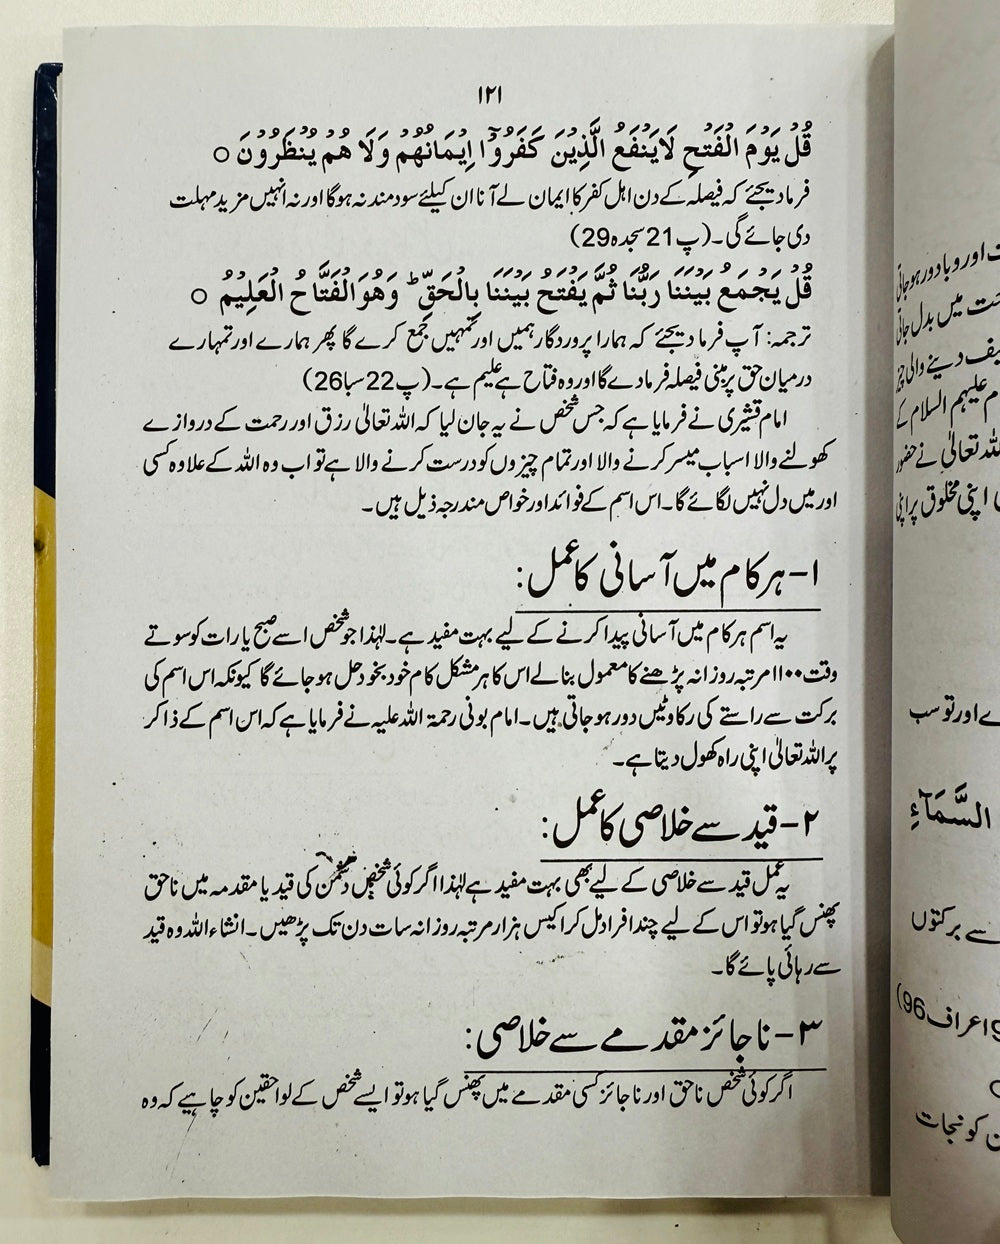 ۱۲۱
قُلْ يَوْمَ الْفَتْحِ لَا يَنْفَعُ الَّذِيْنَ كَفَرُوْٓا اِيْمَانُهُمْ وَلَا هُمْ يُنْظَرُوْنَ ○
فرما دیجئے کہ فیصلہ کے دن اہل کفر کا ایمان لے آنا ان کیلئے سود مند نہ ہوگا اور نہ انہیں مزید مہلت
دی جائے گی۔ (پ 21 سجدہ 29)
قُلْ يَجْمَعُ بَيْنَنَا رَبُّنَا ثُمَّ يَفْتَحُ بَيْنَنَا بِالْحَقِّ ؕ وَهُوَ الْفَتَّاحُ الْعَلِيْمُ ○
ترجمہ: آپ فرما دیجئے کہ ہمارا پروردگار ہمیں اور تمہیں جمع کرے گا پھر ہمارے اور تمہارے
درمیان حق پر مبنی فیصلہ فرما دے گا اور وہ فتاح ہے علیم ہے۔ (پ 22 سبا 26)
امام قشیری نے فرمایا ہے کہ جس شخص نے یہ جان لیا کہ اللہ تعالیٰ رزق اور رحمت کے دروازے
کھولنے والا اسباب میسر کرنے والا اور تمام چیزوں کو درست کرنے والا ہے تو اب وہ اللہ کے علاوہ کسی
اور میں دل نہیں لگائے گا۔ اس اسم کے فوائد اور خواص مندرجہ ذیل ہیں۔
۱- ہر کام میں آسانی کا عمل:
یہ اسم ہر کام میں آسانی پیدا کرنے کے لیے بہت مفید ہے۔ لہٰذا جو شخص اسے صبح یا رات کو سوتے
وقت ۱۱۰۰ مرتبہ روزانہ پڑھنے کا معمول بنالے اس کا ہر مشکل کام خود بخود حل ہو جائے گا کیونکہ اس اسم کی
برکت سے راستے کی رکاوٹیں دور ہو جاتی ہیں۔ امام بونی رحمۃ اللہ علیہ نے فرمایا ہے کہ اس اسم کے ذاکر
پر اللہ تعالیٰ اپنی راہ کھول دیتا ہے۔
۲- قید سے خلاصی کا عمل:
یہ عمل قید سے خلاصی کے لیے بھی بہت مفید ہے لہٰذا اگر کوئی شخص دشمن کی قید یا مقدمہ میں ناحق
پھنس گیا ہو تو اس کے لیے چند افراد مل کر اکیس ہزار مرتبہ روزانہ سات دن تک پڑھیں۔ انشاء اللہ وہ قید
سے رہائی پائے گا۔
۳- ناجائز مقدمے سے خلاصی:
اگر کوئی شخص ناحق اور ناجائز کسی مقدمے میں پھنس گیا ہو تو ایسے شخص کے لواحقین کو چاہیے کہ وہ
اور وبا دور ہو جاتی
میں بدل جاتی
دینے والی چیز
علیہم السلام کے
تعالیٰ نے حضور
اپنی مخلوق پر اپنی
اور تو سب
السَّمَآءِ
سے برکتوں
اعراف 96)
کو نجات